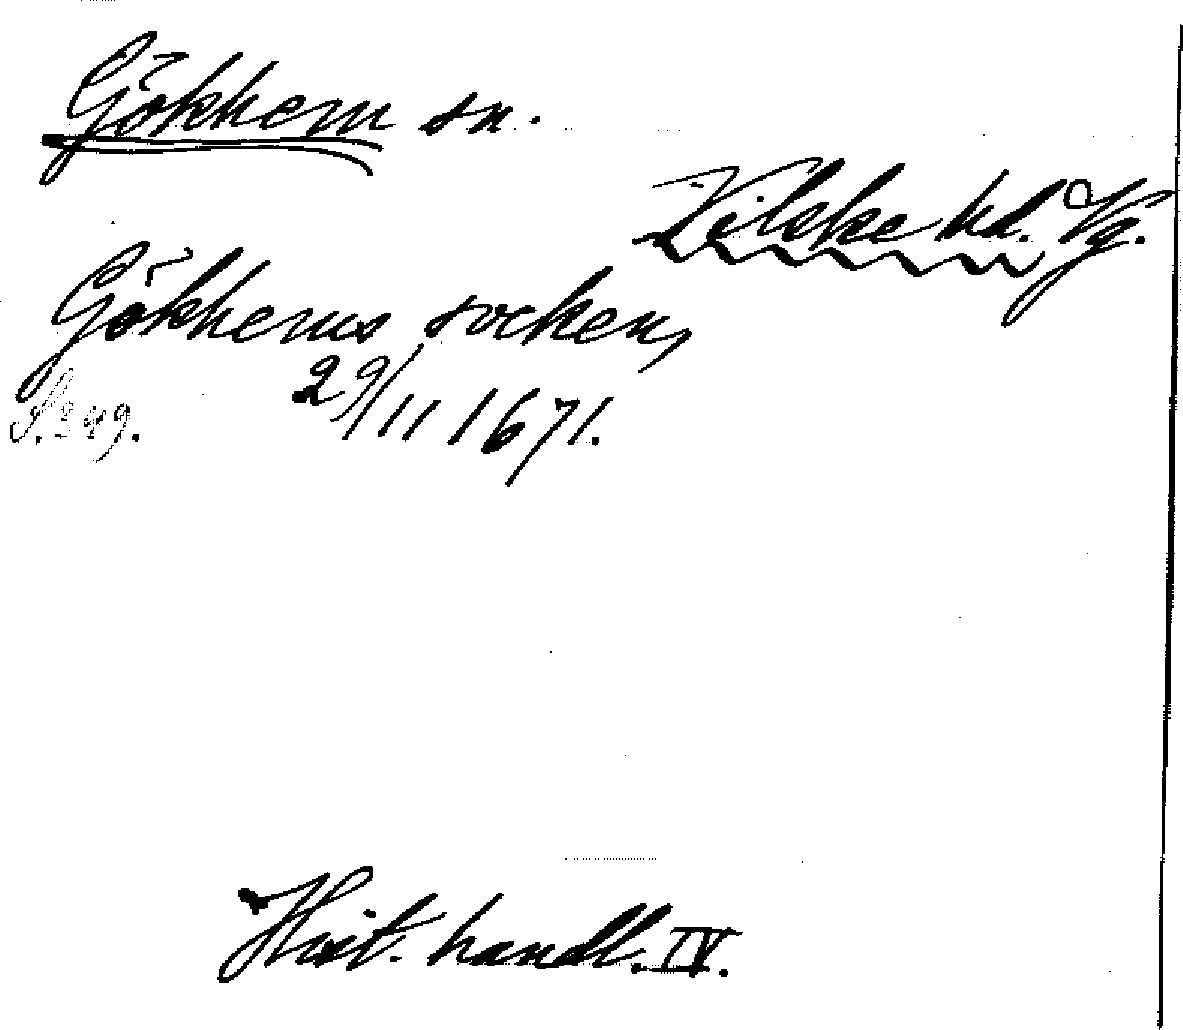 Gökhem sn.
Vilske hd. Vg.
Gökhems socken,
29/11 1671.
S. 249.
Hist. handl. IV.